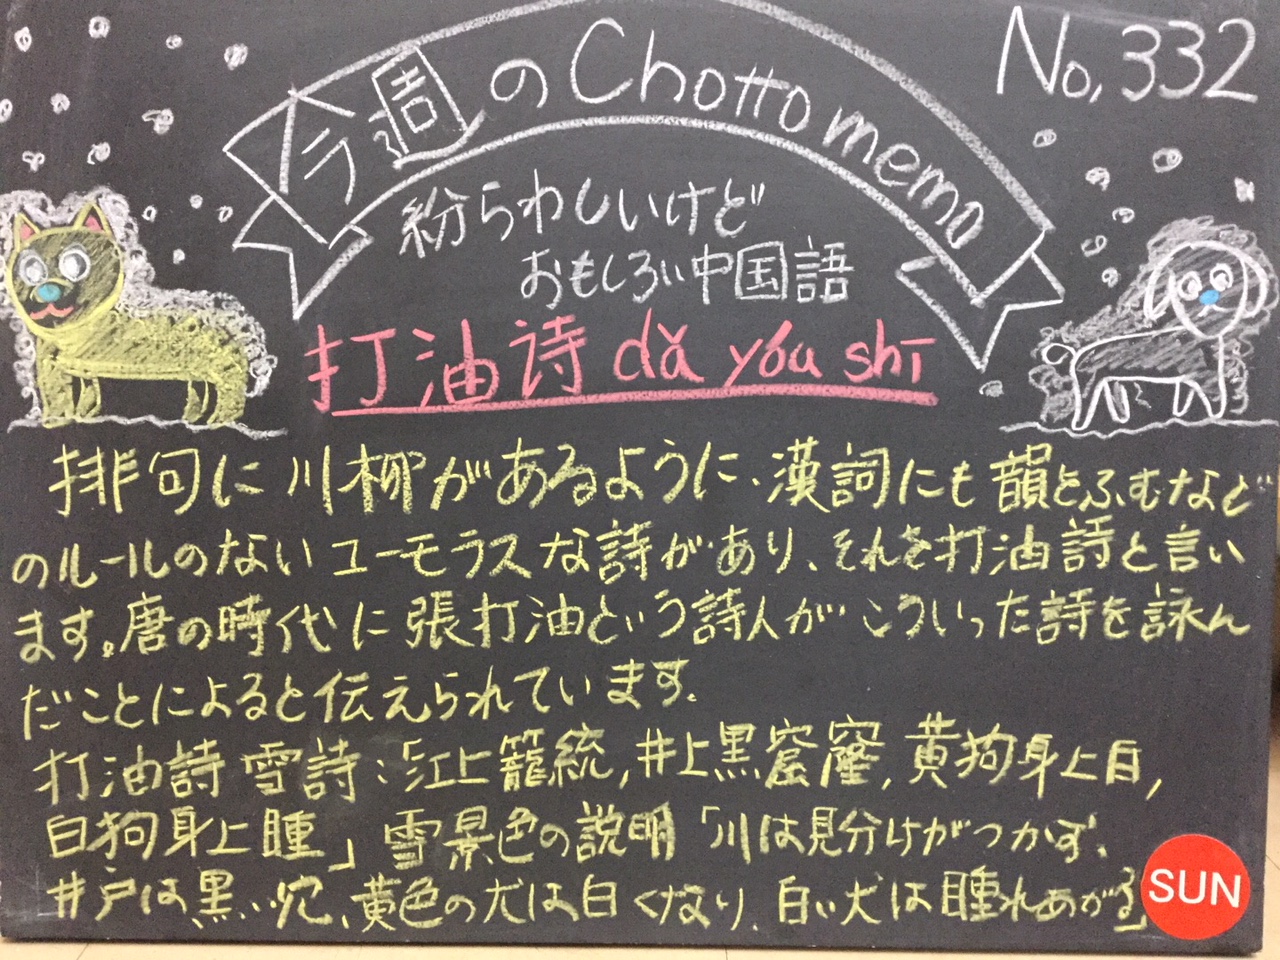 今週のChotto memo
No,332
紛らわしいけど
おもしろい中国語
打油詩 dǎ yóu shī
排句に川柳があるように、漢詞にも韻とふむなど
のルールのないユーモラスな詩があり、それを打油詩と言い
ます。唐の時代に張打油という詩人がこういった詩を詠ん
だことによると伝えられています。
打油詩 雪詩:「江上籠統,井上黒窟窿,黄狗身上白,
白狗身上腫」 雪景色の説明「川は見分けがつかず、
井戸は黒い穴、黄色の犬は白くなり、白い犬は腫れあがる」
SUN